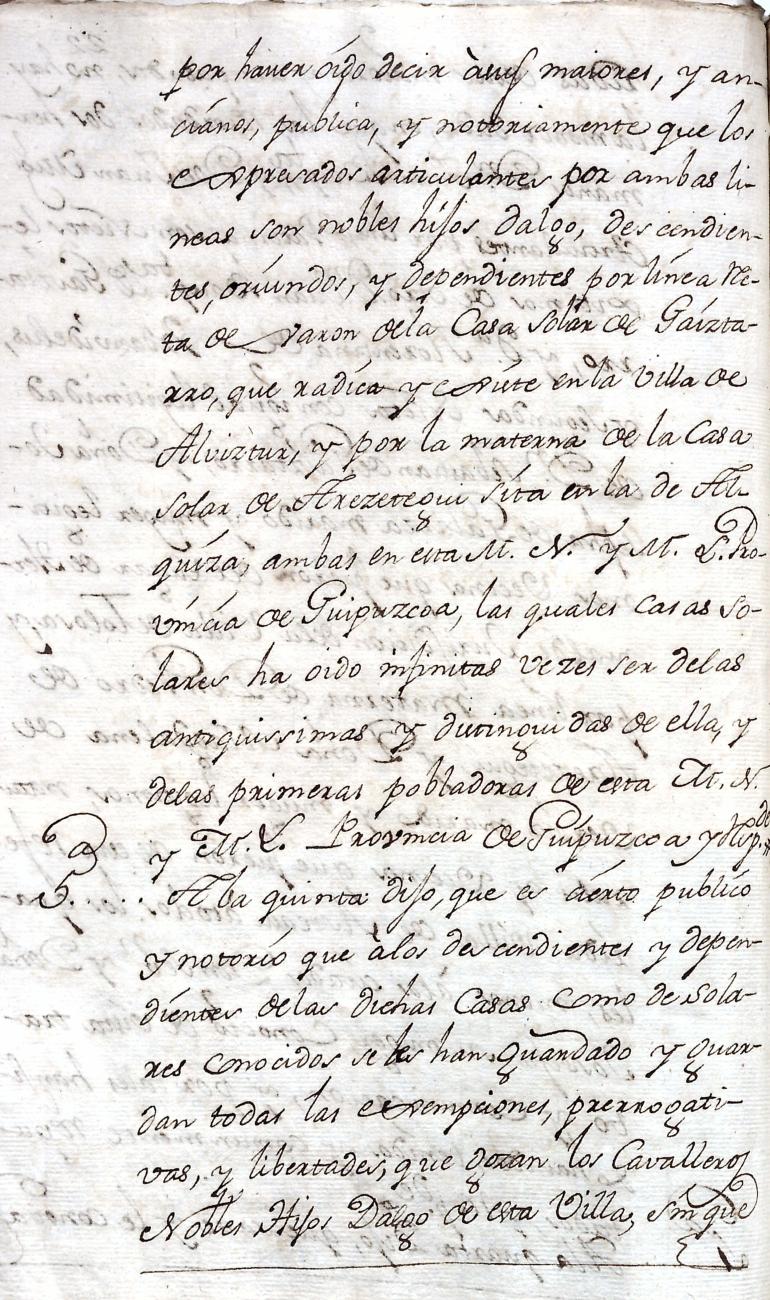 por haver óido decir àsus maiores, y an-
cianos, publica, y notoriamente que los
expresados articulantes por ambas li-
neas son nobles hijos dalgo, descendien-
tes, oriundos, y dependientes por línea Re-
ta de varon dela Casa solar de Gaizta-
rro, que radica y existe en la villa de
Alviztur, y por la materna de la Casa
solar de Arezetegui sita en la de Al-
quiza, ambas en esta M. N. y M. L. Pro-
vincia de Guipuzcoa, las quales casas so-
lares ha oido infinitas vezes ser delas
antiquissimas y distinguidas de ella, y
delas primeras pobladoras de esta M. N.
y M. L. Provincia de Guipuzcoa y
5.ª .... A la quinta dijo, que es cierto publico
y notorio que àlos descendientes y depen-
dientes delas dichas Casas como de sola-
res conocidos se les han guardado y guar-
dan todas las exempciones, prerrogati-
vas, y libertades, que gozan los Cavalleros
Nobles Hijos Dalgo de esta Villa, sin que